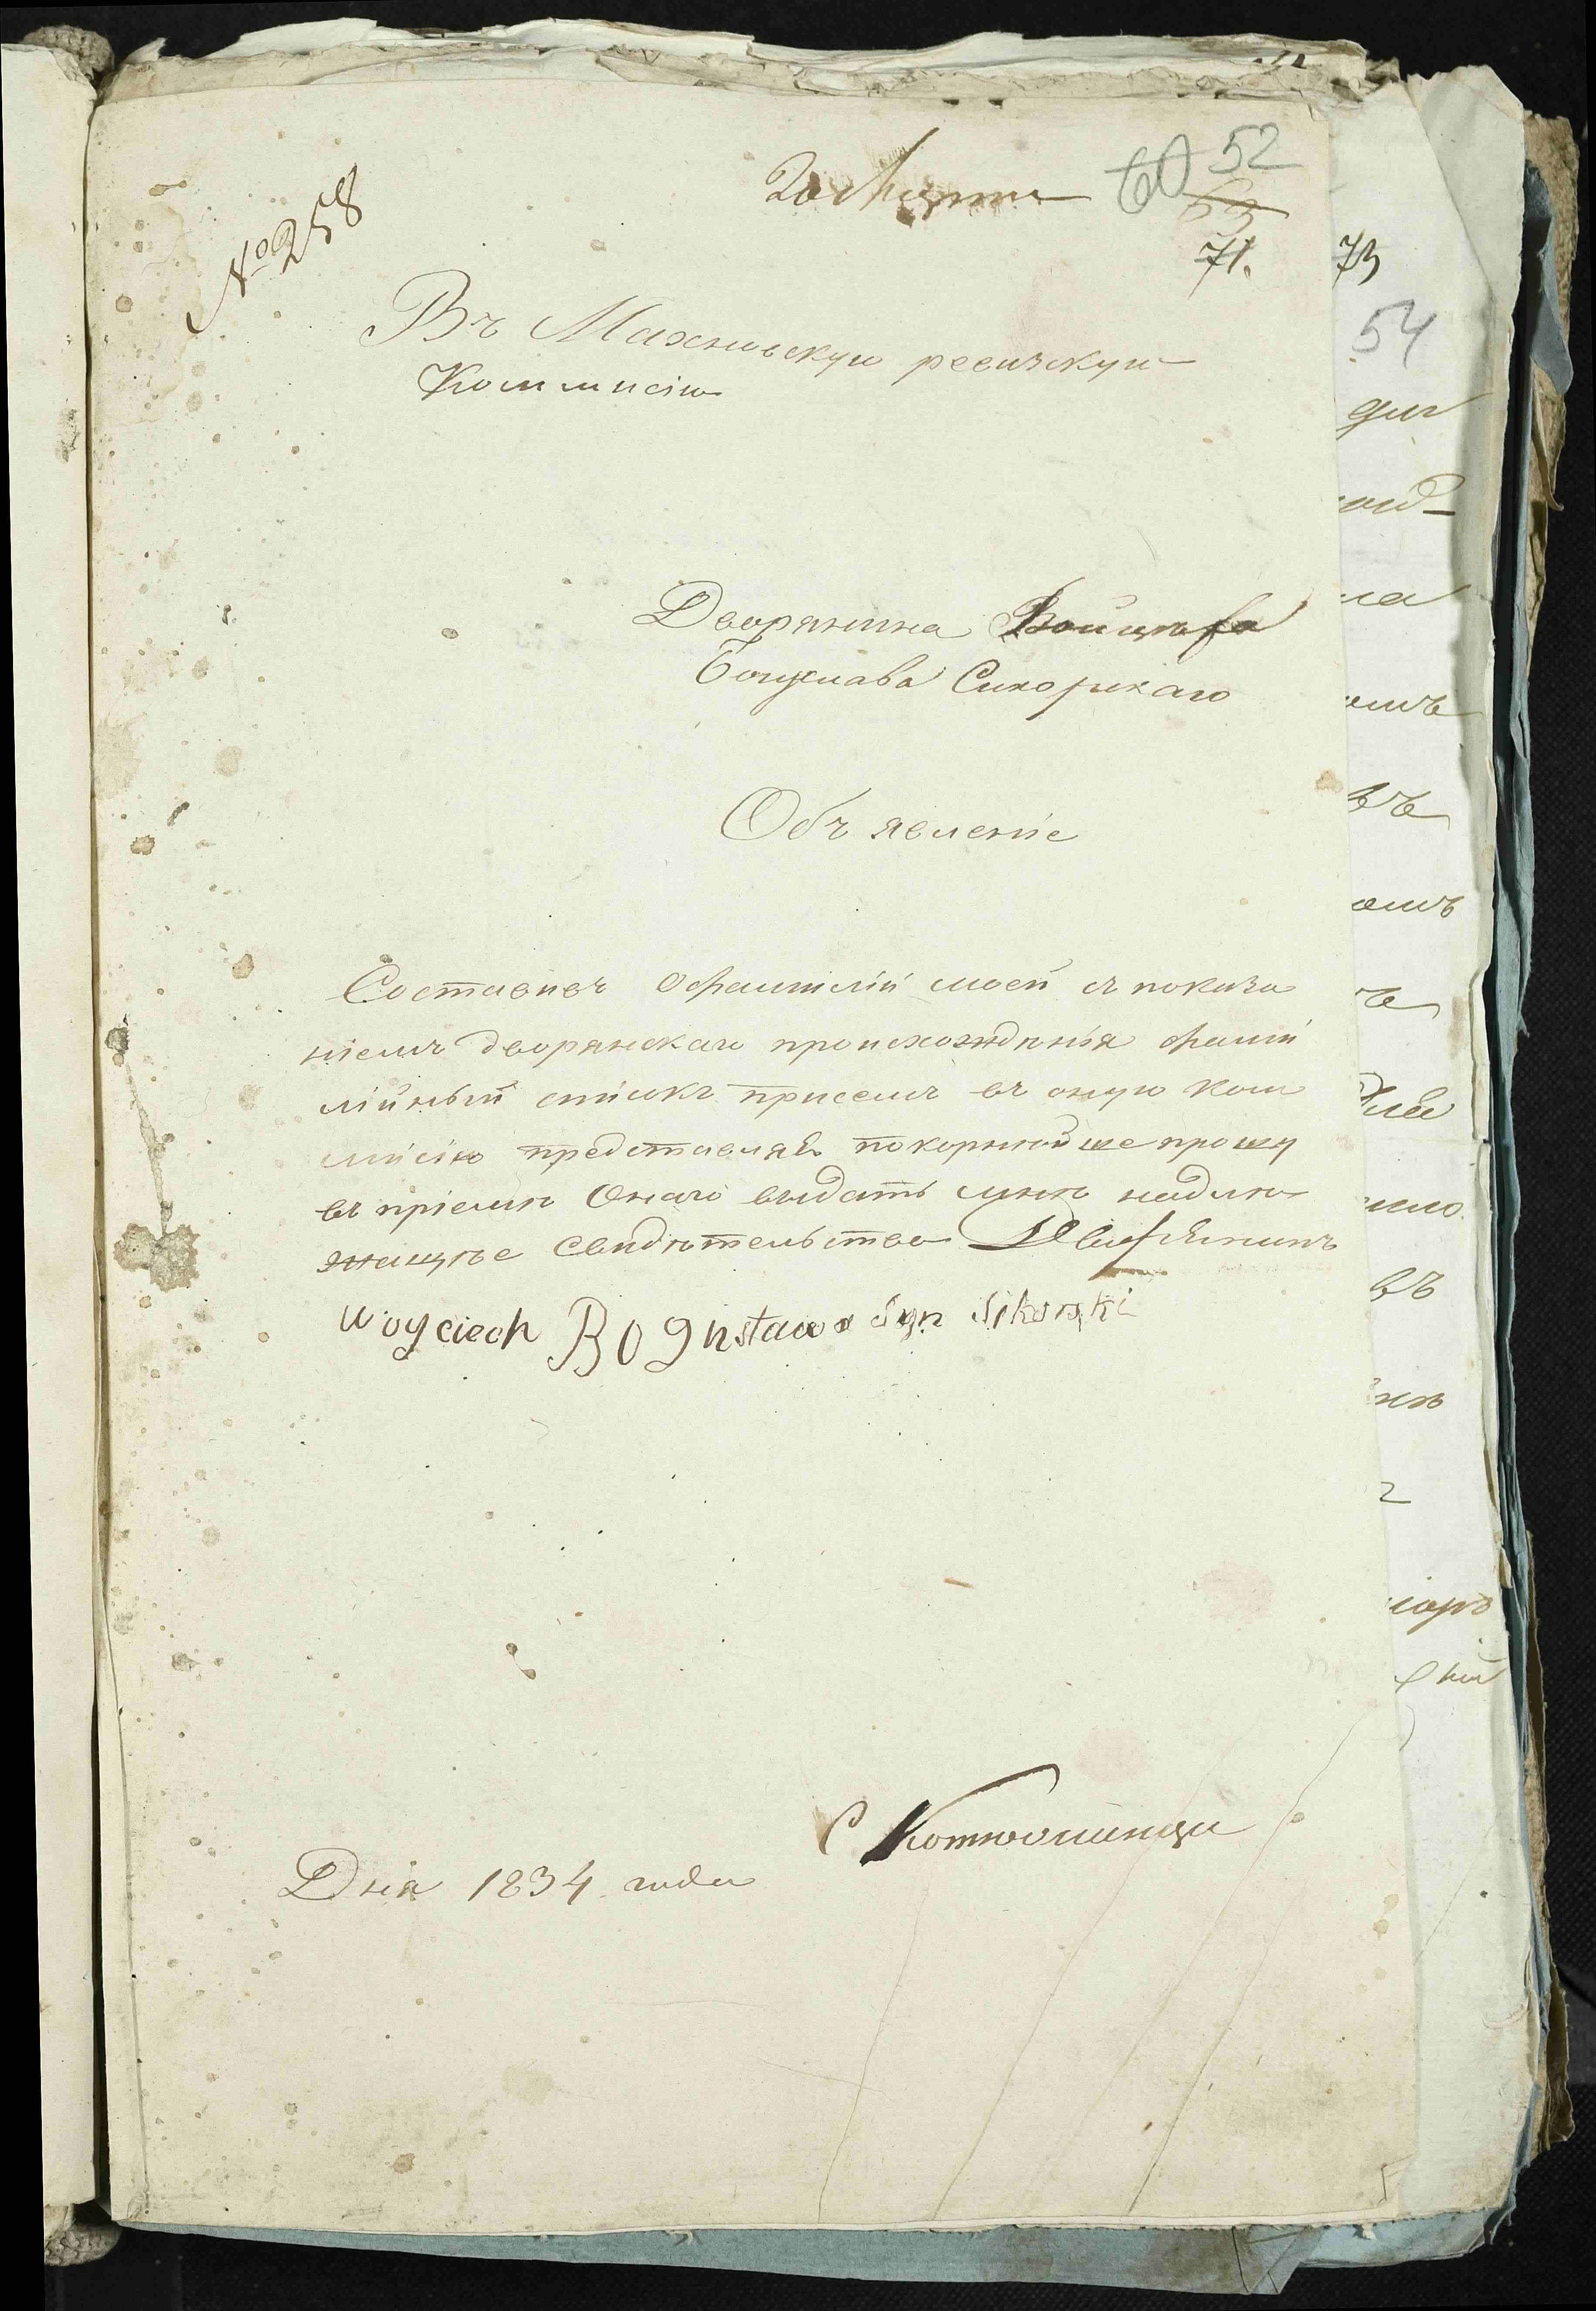 № 258
20 Марта
60 52
63
71.
73
54
Въ Махновскую ревизскую
Коммисію
Дворянина Войцеха
Богуслава Сикорскаго
Объявленіе
Составивъ о фамиліи моей съ показа
ніемъ дворянскаго происхожденія фами
лійный списокъ при семъ въ оную ком
мисію представляя покорнѣйше прошу
въ пріемѣ онаго выдать мнѣ надлѣ
жащѣе свидѣтельство Дворянинъ
Woyciech Bogusława Syn Sikorski
С Котюжинци
Дня 1834 года